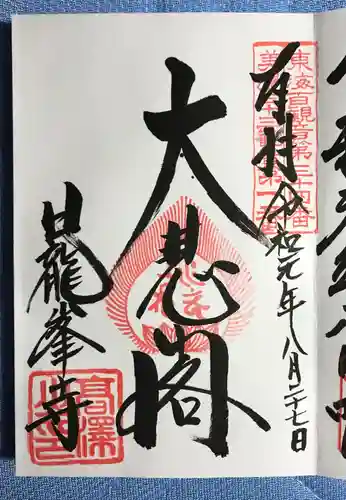 奉拝
令和元年八月二十七日
東海百観音第三十四番
大悲閣
日龍峯寺
高澤